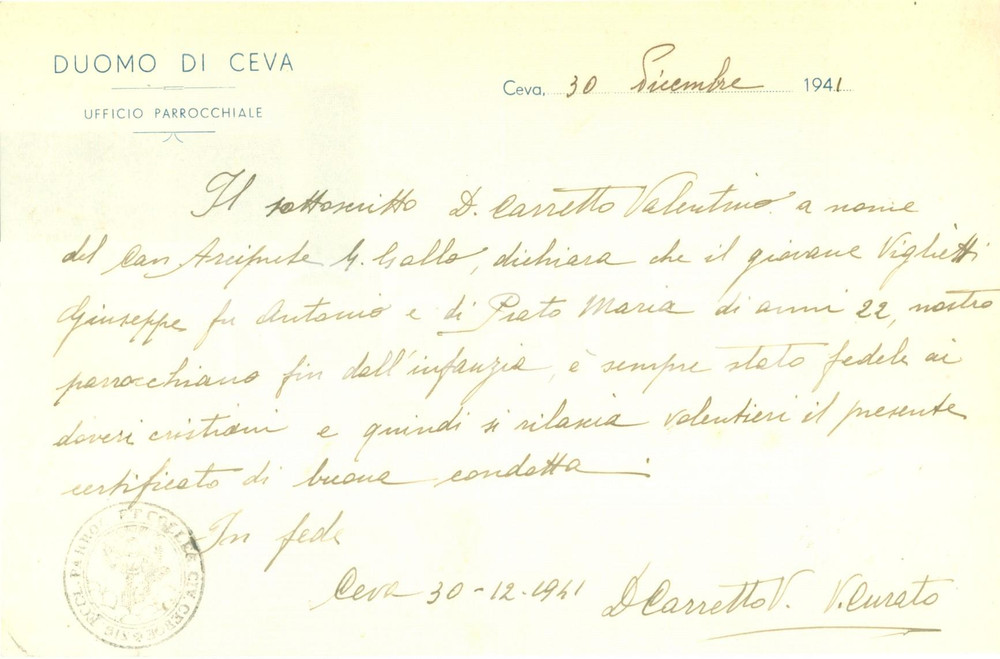 DUOMO DI CEVA
UFFICIO PARROCCHIALE
Ceva, 30 Dicembre 1941
Il sottoscritto D. Carretto Valentino a nome
del Can Arciprete G. Gallo, dichiara che il giovane Viglietti
Giuseppe fu Antonio e di Prato Maria di anni 22, nostro
parrocchiano fin dall'infanzia, è sempre stato fedele ai
doveri cristiani e quindi si rilascia volentieri il presente
certificato di buona condotta.
In fede
Ceva 30-12-1941
D Carretto V. V. Curato